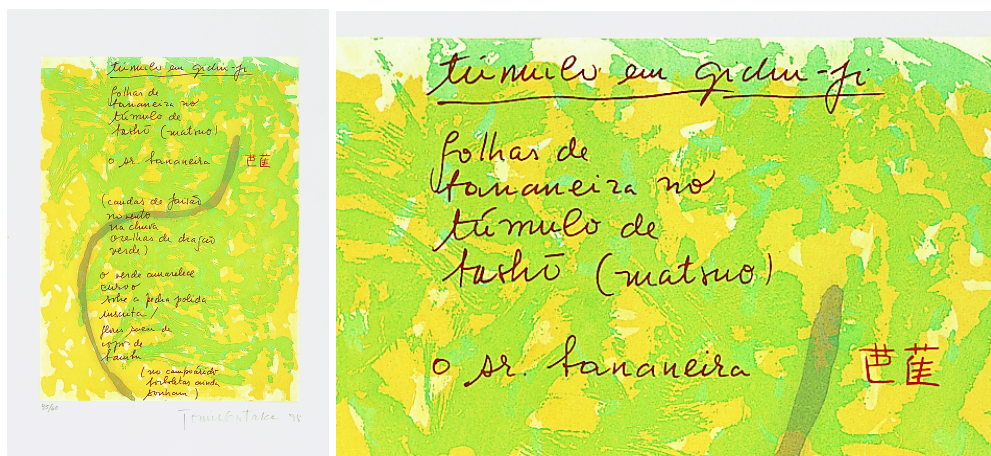 túmulo em gichu-ji
folhas de
bananeira no
túmulo de
bashō (matsuo)
o sr. bananeira 芭蕉
(caudas de faisão
no vento
na chuva
orelhas de dragão
verde)
o verde amarelece
curvo
sobre a pedra polida
inscrita /
flores saem de
copos de
bambu
(no campo árido
borboletas ainda
sonham)
Tomie Ohtake 98
túmulo em gichu-ji
folhas de
bananeira no
túmulo de
bashō (matsuo)
o sr. bananeira 芭蕉